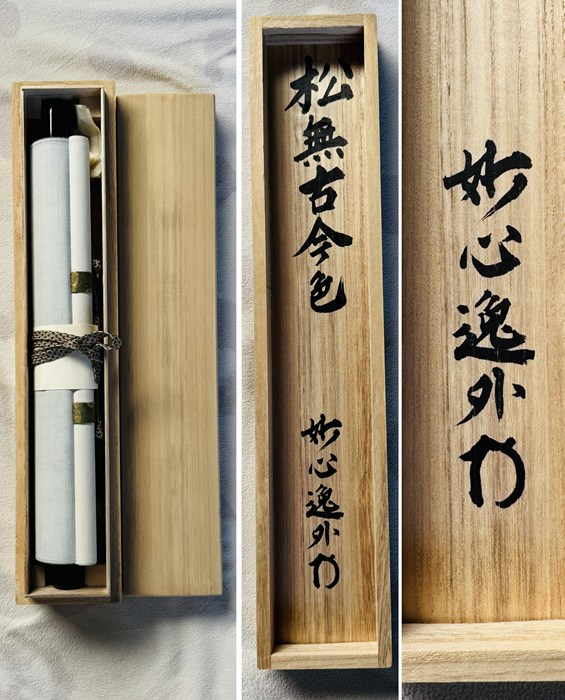 松無古今色
妙心逸外
妙心逸外